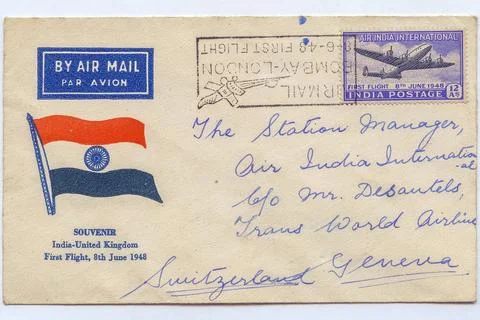 BY AIR MAIL
PAR AVION
8-6-48 FIRST FLIGHT
BOMBAY-LONDON
AIR MAIL
AIR INDIA INTERNATIONAL
FIRST FLIGHT 8TH JUNE 1948
INDIA POSTAGE 12 AS
The Station Manager,
Air India Internation
-al
C/o Mr. Desautels,
Trans World Airline
Switzerland Geneva
SOUVENIR
India-United Kingdom
First Flight, 8th June 1948